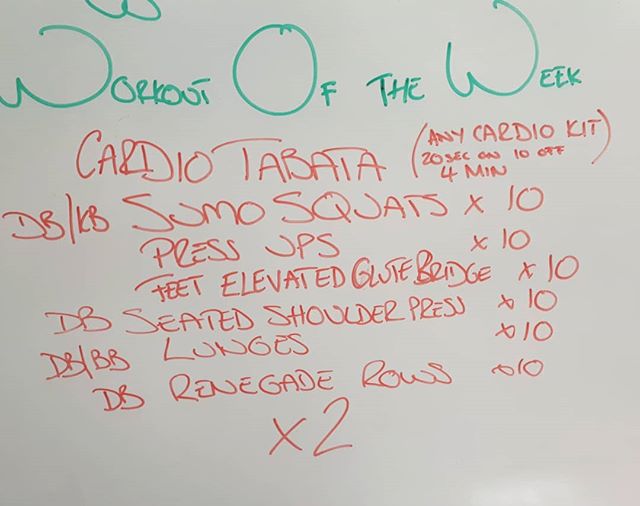 WORKOUT OF THE WEEK
CARDIO TABATA (ANY CARDIO KIT)
20 SEC ON 10 OFF
4 MIN
DB/KB SUMO SQUATS x 10
PRESS UPS x 10
FEET ELEVATED GLUTE BRIDGE x 10
DB SEATED SHOULDER PRESS x 10
DB/BB LUNGES x 10
DB RENEGADE ROWS x 10
x2